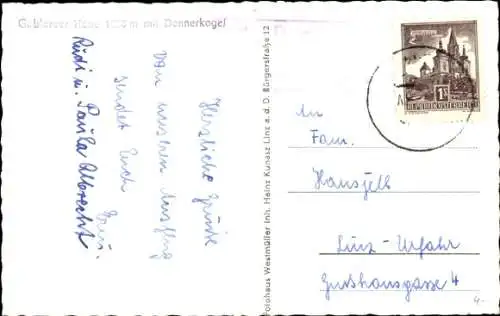 Gablonzer Hütte 1550 m mit Donnerkogel
Herzliche Grüße
von unserem Ausflug
sendet Euch
Rudi u. Paula Albrecht
Fotohaus Westmüller Inh. Heinz Kunasz Linz a. d. D. Bürgerstraße 12
REPUBLIK ÖSTERREICH
An
Fam.
Linz-Urfahr
4